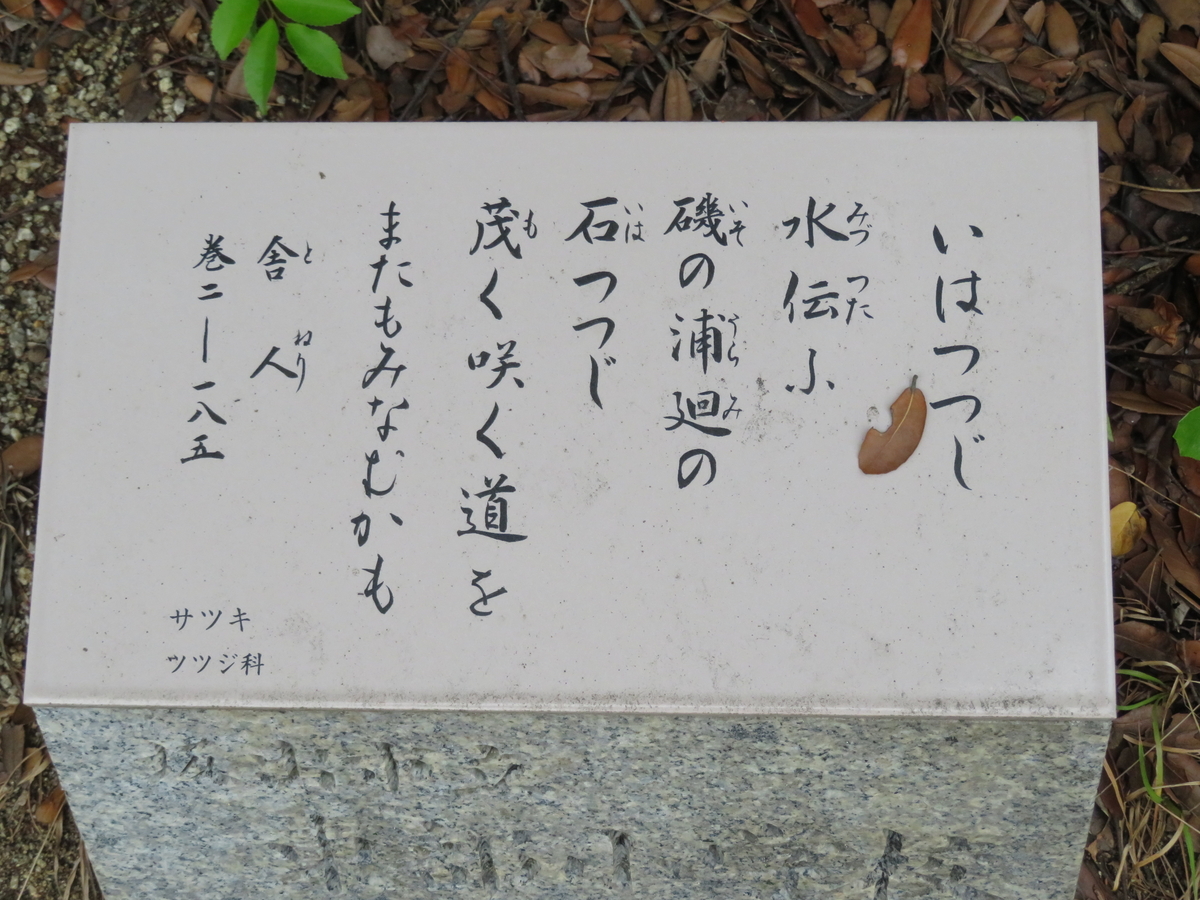 いはつつじ
みづ つた
水伝ふ
いそ うら み
磯の浦廻の
いは
石つつじ
も
茂く咲く道を
またもみなむかも
と ねり
舎人
巻二―一八五
サツキ
ツツジ科